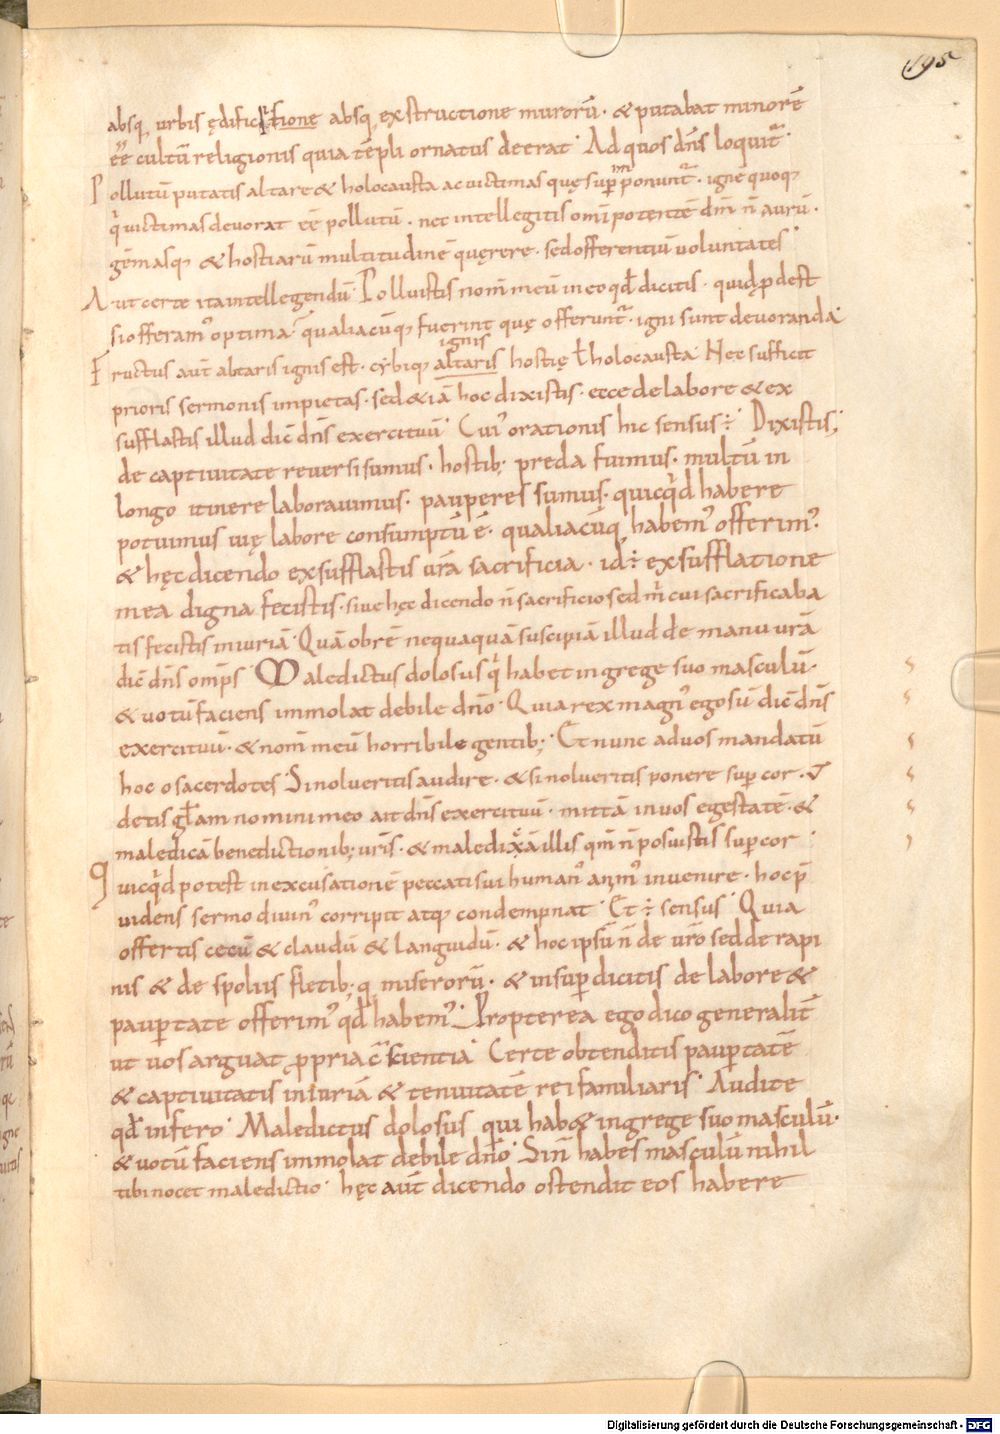 195
absq; urbis ędificatione absq; exstructione murorū. & putabat minorē
eē cultū religionis quia tēpli ornatus deerat. Ad quos dn̄s loquit̄.
Pollutū putatis altare & holocausta ac victimas quę sup̄ponunt̄. ignē quoq;
q̓ victimas devorat eē pollutū. nec intellegitis omīpotentē dm̄ n̄ aurū.
gēmasq; & hostiarū multitudinē quęrere. sed offerentiū voluntates.
Aut certe ita intellegendū. Polluistis nom̄ meū in eo qđ dicitis. quid ꝓdest
si offeram᾽ optima. qualiacūq; fuerint quę offerunt̄. igni sunt devoranda.
ignis
Fructus aut̄ altaris ignis est. cybiq; altaris hostię ł holocausta. Nec sufficit
prioris sermonis impietas. sed & iā hoc dixistis. ecce de labore & ex
sufflastis illud dic̄ dn̄s exercituū. Cui᾽ orationis hic sensus ÷. Dixistis;
de captivitate reversi sumus. hostib; preda fuimus. multū in
longo itinere laboravimus. pauperes sumus. quicq̓d habere
potuimus vię labore consumptū ē. qualiacūq; habem᾽ offerim᾽.
& hęc dicendo exsufflastis vr̄a sacrificia. id ÷ exsufflatione
mea digna fecistis. sive hęc dicendo n̄ sacrificio sed m̓ cui sacrificaba
tis fecistis iniuriā. Quā obrē nequaquā suscipiā illud de manu vr̄a
dic̄ dn̄s om̄ps. Maledictus dolosus q̓ habet in grege suo masculū.
& votū faciens immolat debile dn̄o. Quia rex magn᾽ ego sū dic̄ dn̄s
exercituū. & nom̄ meū horribile gentib;. Et nunc ad vos mandatū
hoc o sacerdotes. Si nolveritis audire. & si nolveritis ponere sup̄ cor. ut
detis gl̄am nomini meo ait dn̄s exercituū. mittā in vos egestatē. &
maledicā benedictionib; vr̄is. & maledixā illis qm̄ n̄ posuistis sup̄ cor
Quicq̓d potest in excusationē peccati sui human᾽ anim᾽ invenire. hoc p̄
videns sermo divin᾽ corripit atq; condempnat. Et ÷ sensus. Quia
offertis cecū & claudū & languidū. & hoc ipsū n̄ de vr̄o sed de rapi
nis & de spoliis flētib; q; miserorū. & insup̄ dicitis de labore &
paup̄tate offerim᾽ qđ habem᾽. Propterea ego dico generalit̄
ut vos arguat ꝓpria c̄scientia. Certe obtenditis paup̄tatē
& captivitatis iniuriā & tenuitatē rei familiaris. Audite
qđ infero. Maledictus dolosus qui hab& in grege suo masculū.
& votū faciens immolat debile dn̄o. Sin̄ habes masculū nihil
tibi nocet maledictio. hęc aut̄ dicendo ostendit eos habere
Digitalisierung gefördert durch die Deutsche Forschungsgemeinschaft - DFG